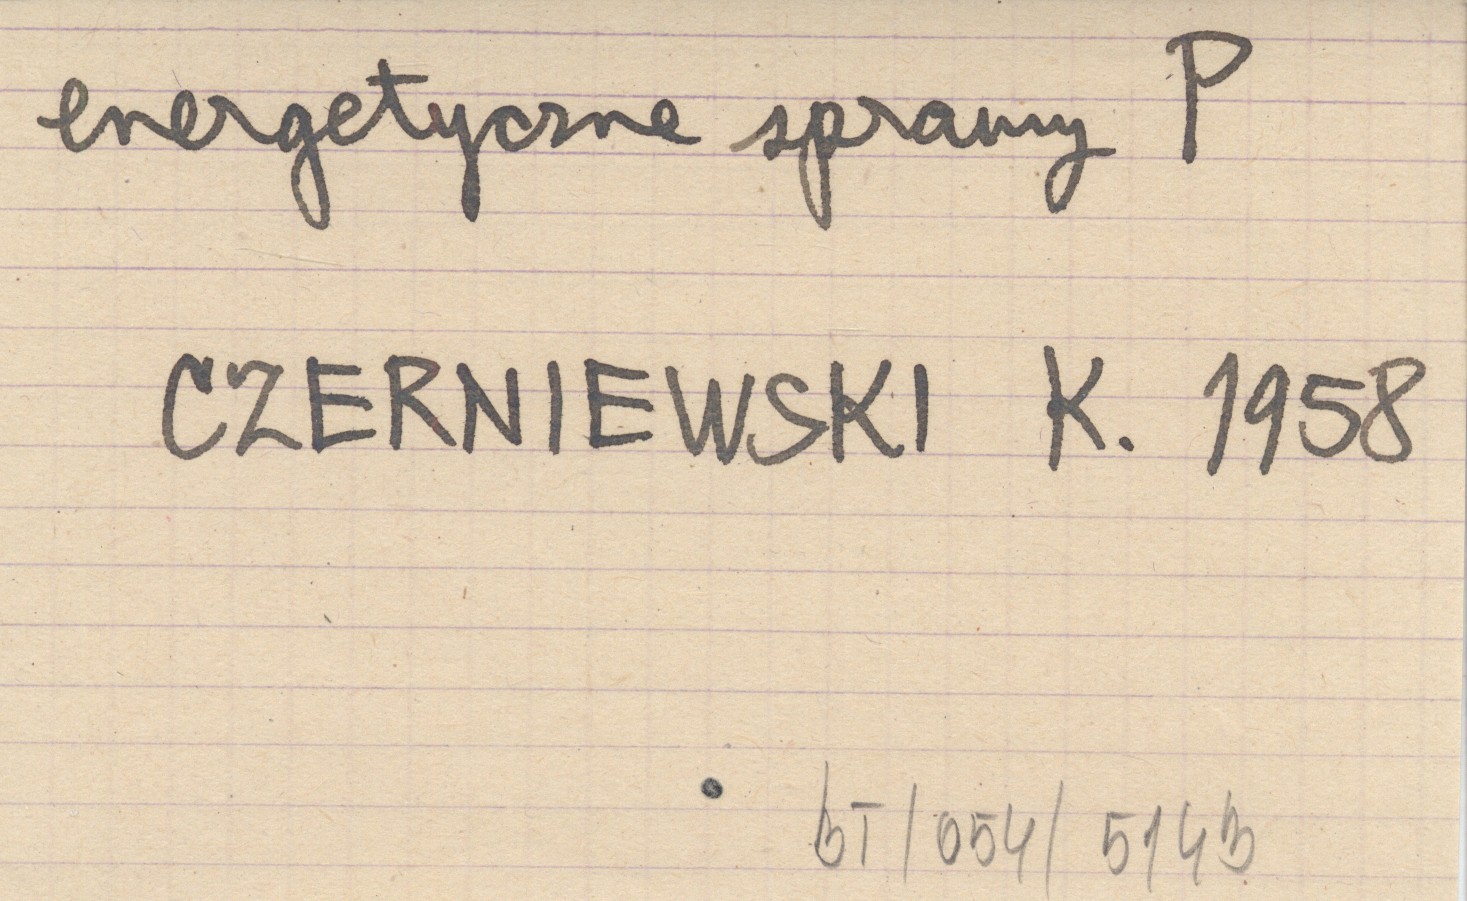 energetyczne sprawy P
CZERNIEWSKI K. 1958
BT/054/5143